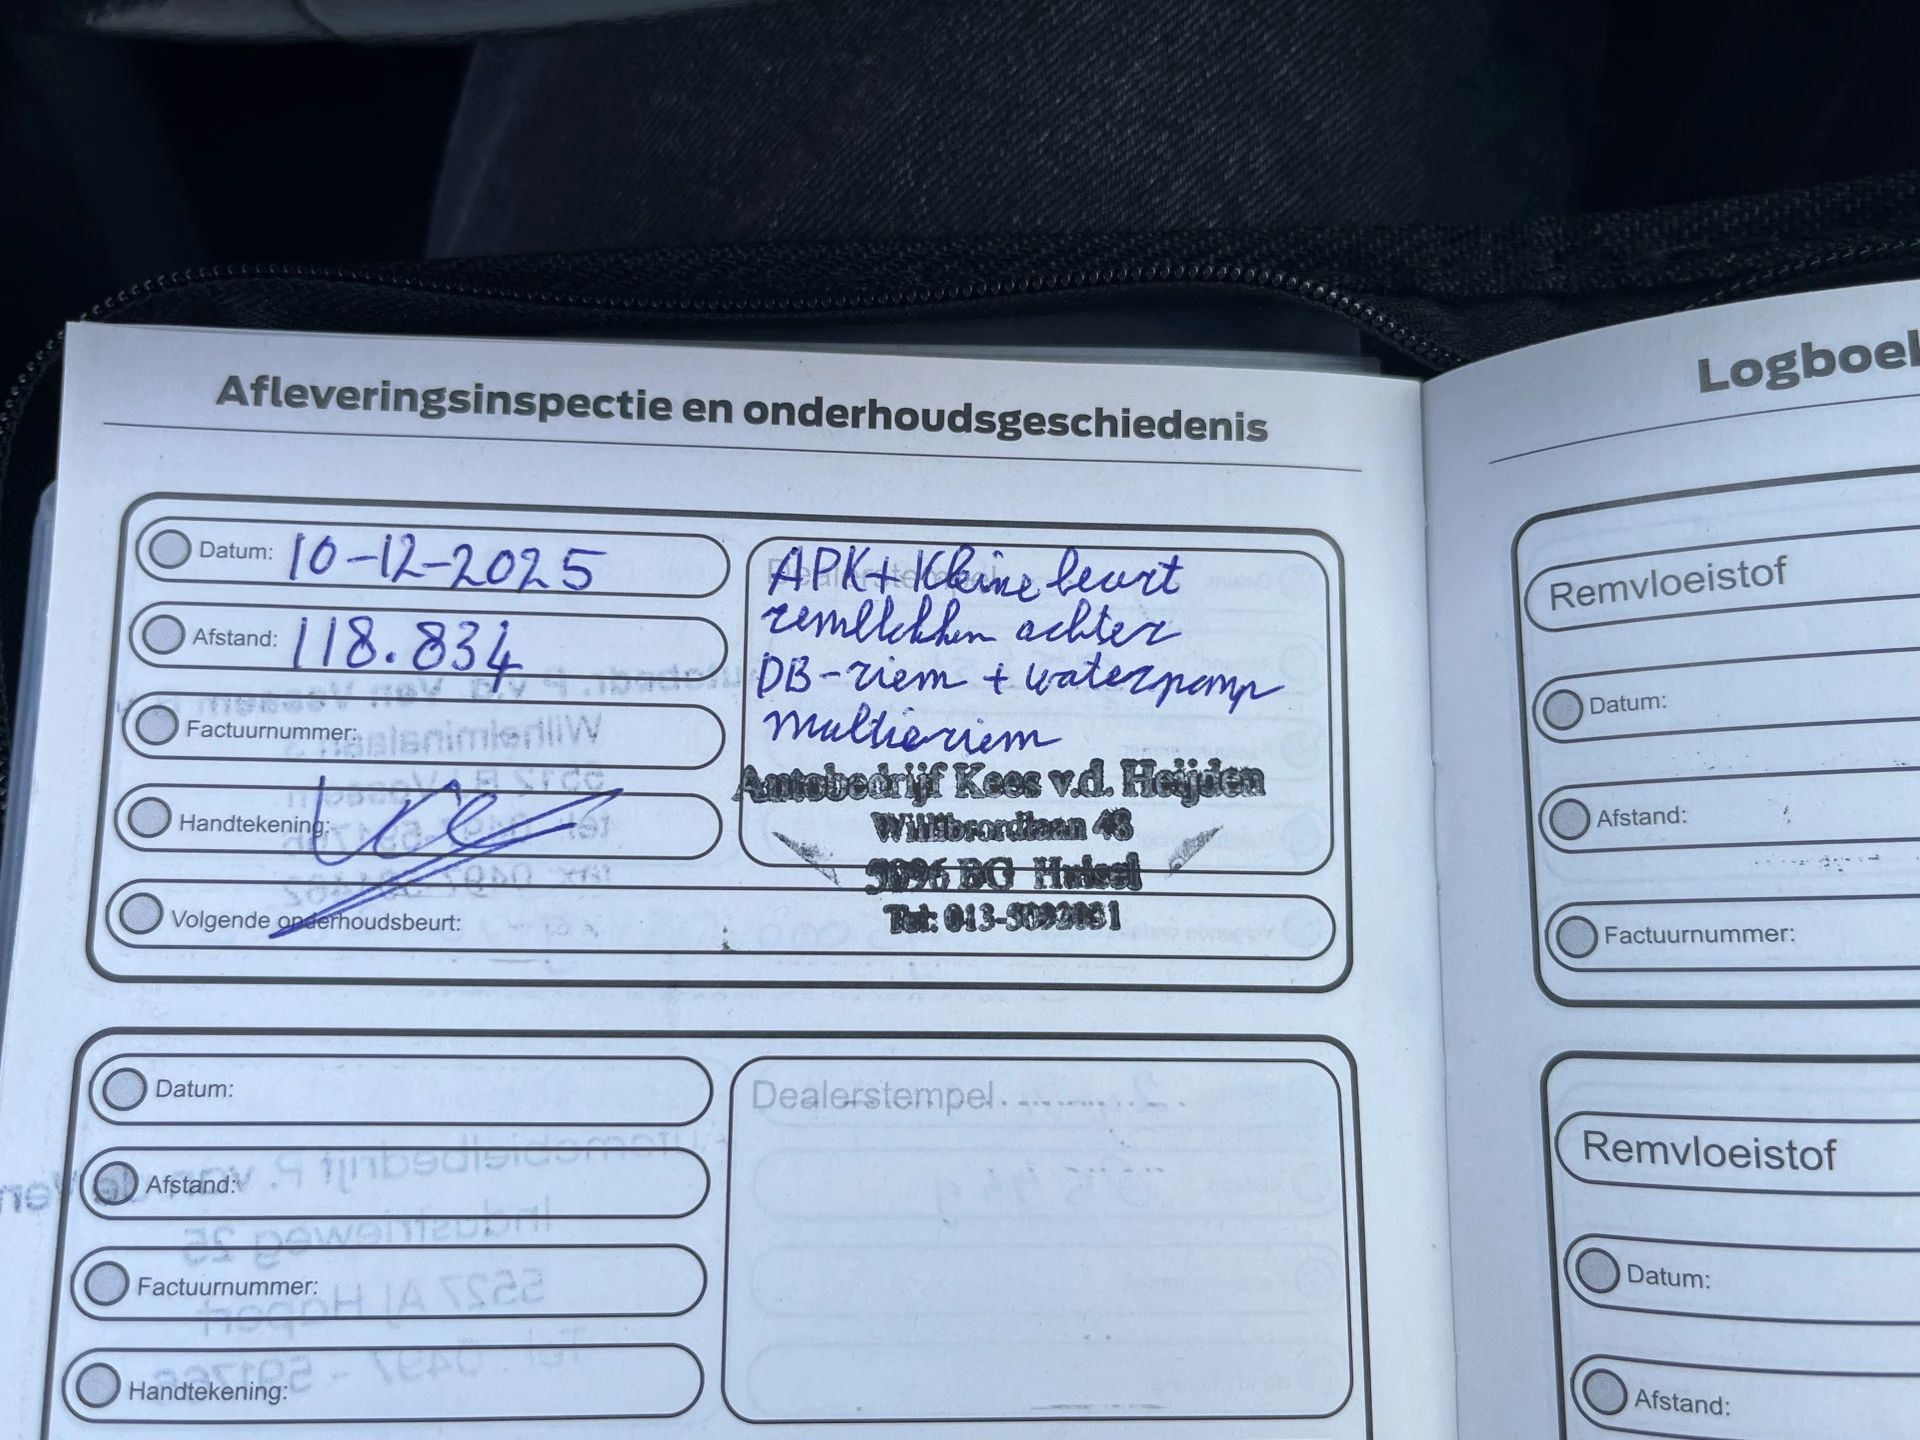 Afleveringsinspectie en onderhoudsgeschiedenis
Datum: 10-12-2025
Afstand: 118.834
Factuurnummer:
Handtekening:
Volgende onderhoudsbeurt:
Dealerstempel
APK + Kleine beurt
remblokken achter
DB-riem + waterpomp
multieriem
Autobedrijf Kees v.d. Heijden
Willibrordlaan 48
Tel: 013-
Datum:
Afstand:
Factuurnummer:
Handtekening:
Dealerstempel
Remvloeistof
Datum:
Afstand:
Factuurnummer:
Remvloeistof
Datum:
Afstand: